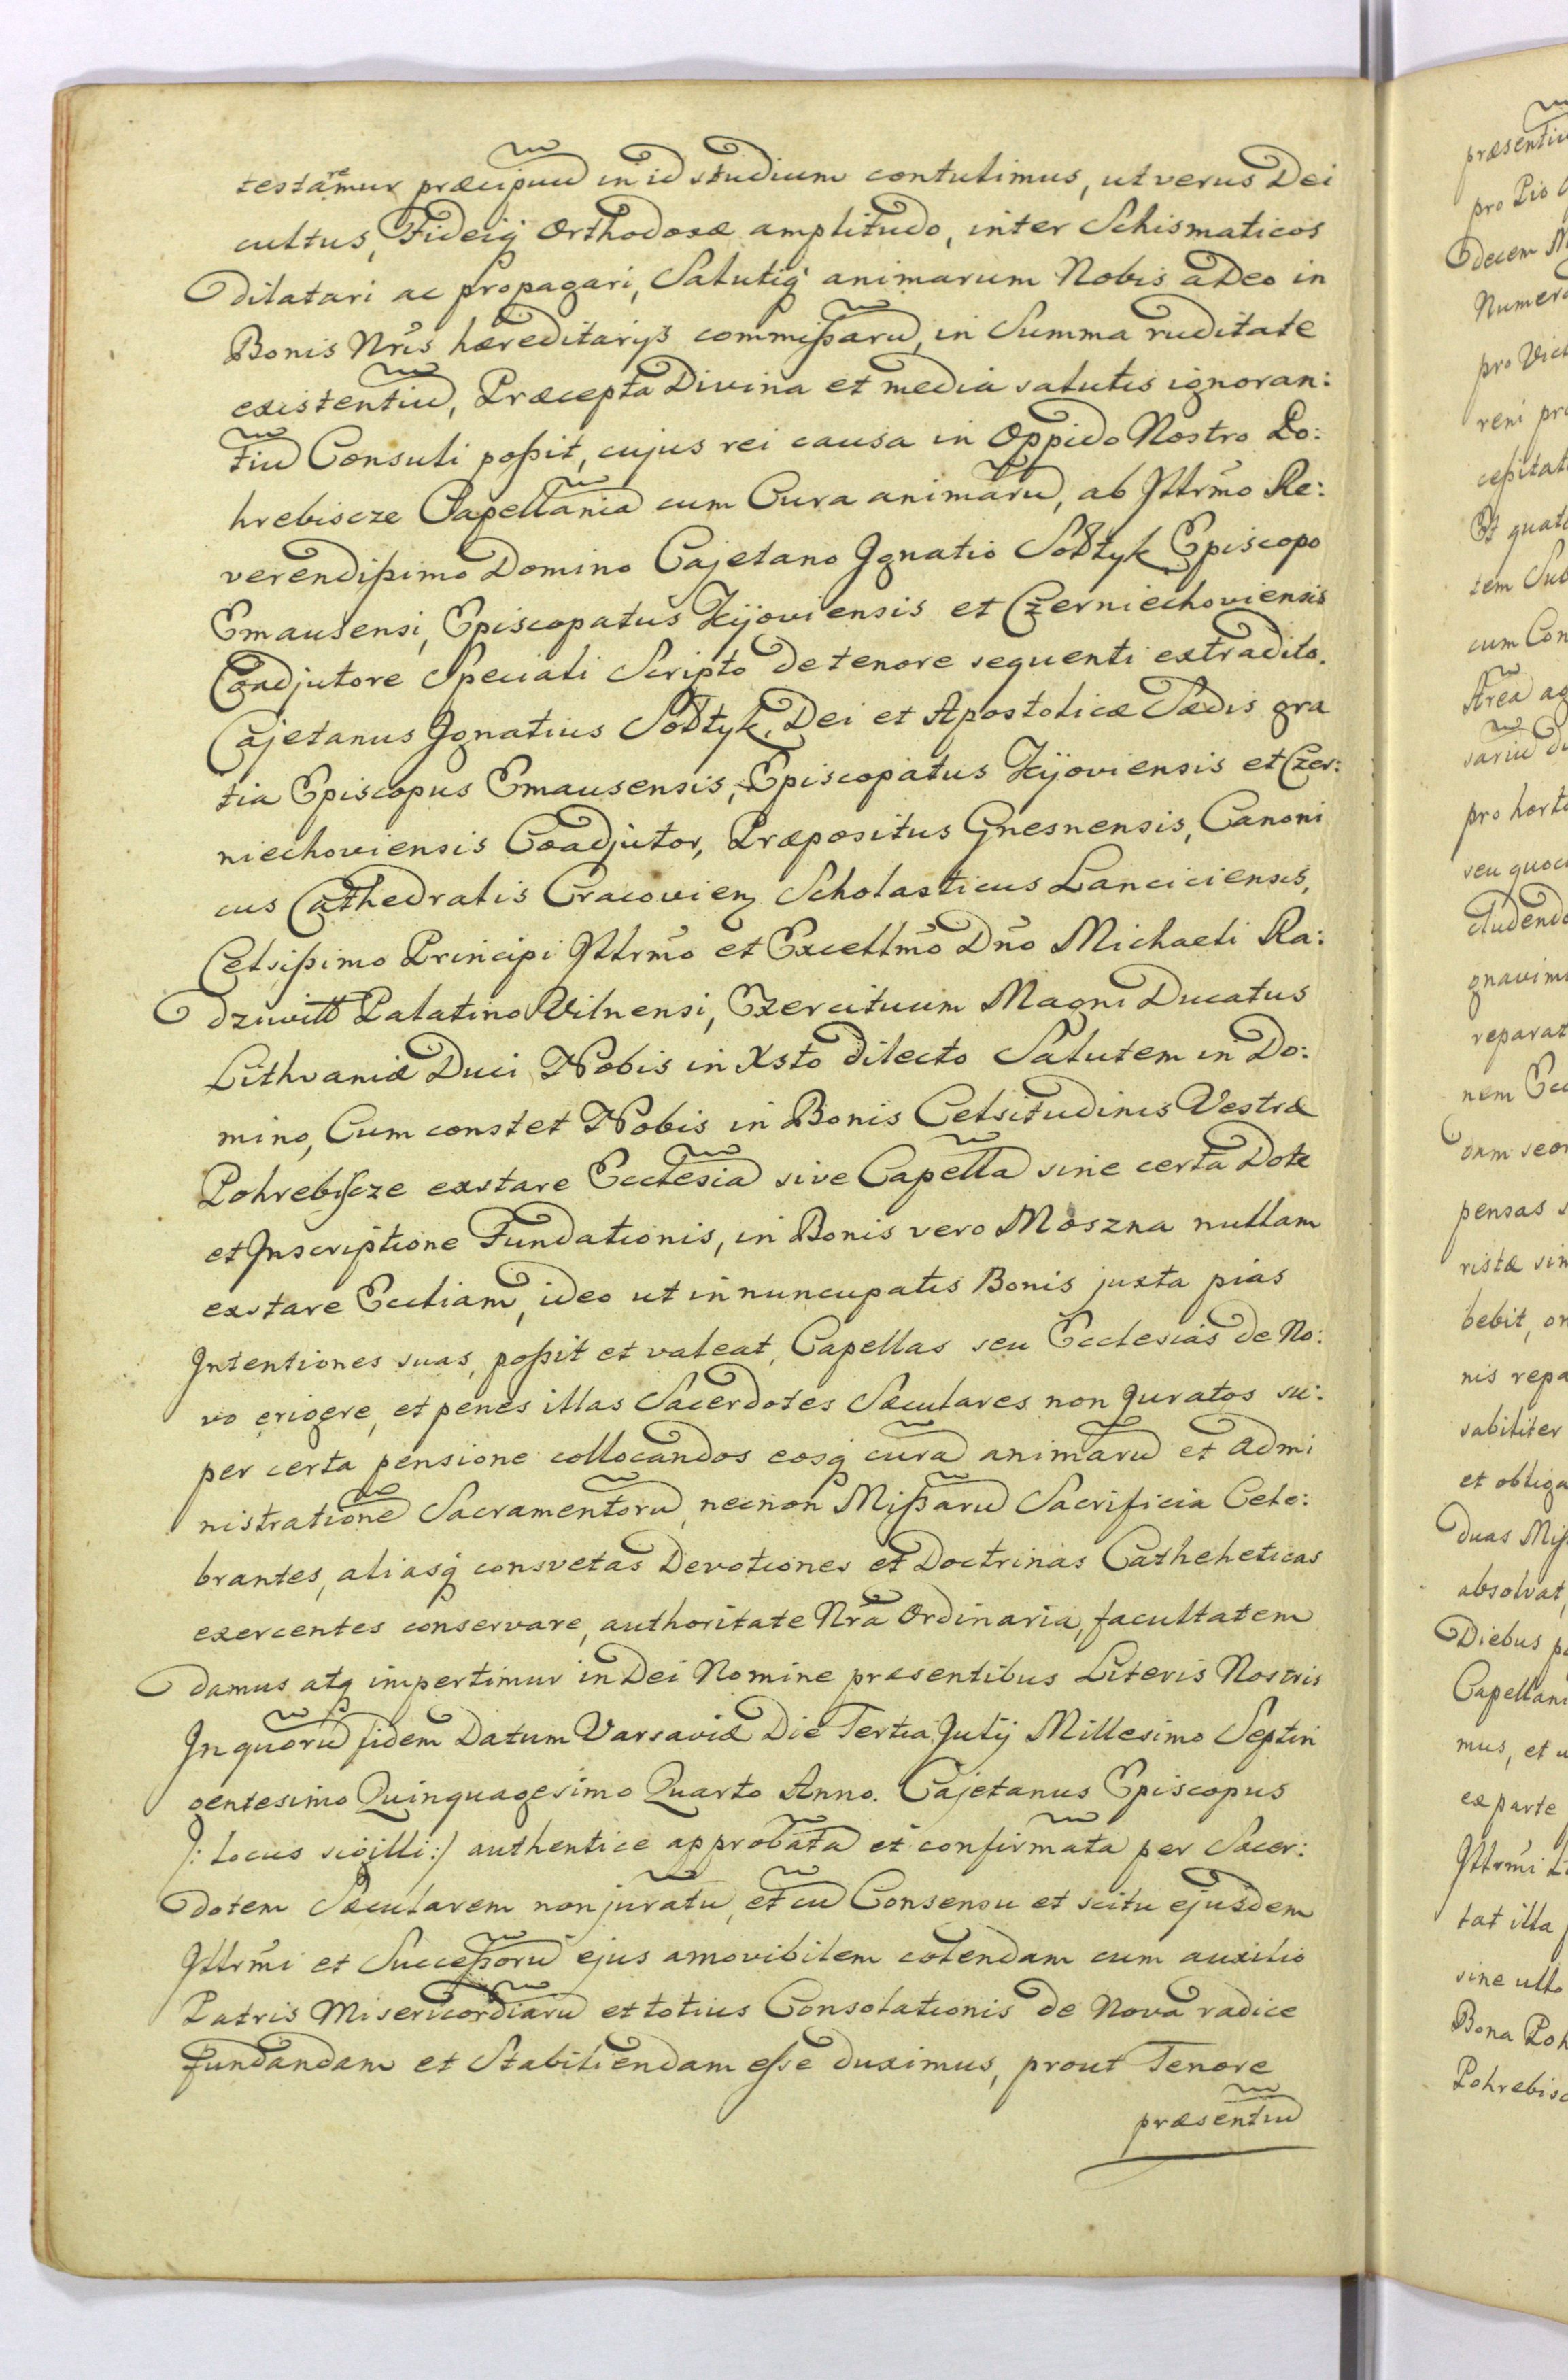 testaremur præcipuu in id studium contulimus, ut verus Dei
cultus, Fideiq Orthodoxæ amplitudo, inter Schismaticos
dilatari ac propagari, Salutiq animarum Nobis a Deo in
Bonis Nris hæreditarijs commißaru, in Summa ruditate
existentiu, Præcepta Divina et media salutis ignoran:
tiu Consuli poßit, cujus rei causa in Oppido Nostro Po:
hrebiscze Capellania cum Cura animaru, ab Illrmo Re:
verendißimo Domino Cajetano Ignatio Sołtyk Episcopo
Emausensi, Episcopatus Kijoviensis et Czerniechoviensis
Coadjutore Speciali Scripto de tenore sequenti extradito.
Cajetanus Ignatius Sołtyk, Dei et Apostolicæ Sædis gra
tia Episcopus Emausensis, Episcopatus Kijoviensis et Czer:
niechoviensis Coadjutor, Præpositus Gnesnensis, Canoni
cus Cathedralis Cracovien Scholasticus Lanciciensis,
Celsißimo Principi Illrmo et Excellmo Dno Michaeli Ra:
dziwiłł Palatino Vilnensi, Exercituum Magni Ducatus
Lithvaniæ Duci Nobis in Xsto dilecto Salutem in Do:
mino, Cum constet Nobis in Bonis Celsitudinis Vestræ
Pohrebiscze exstare Ecclesia sive Capella sine certa Dote
et Inscriptione Fundationis, in Bonis vero Moszna nullam
exstare Eccliam, ideo ut in nuncupatis Bonis juxta pias
Intentiones suas, poßit et valeat, Capellas seu Ecclesias de No:
vo erigere, et penes illas Sacerdotes Sæculares non Juratos su:
per certa pensione collocandos eosq cura animaru et Admi
nistratione Sacramentoru, necnon Mißaru Sacrificia Cele:
brantes, aliasq consvetas Devotiones et Doctrinas Catheheticas
exercentes conservare, authoritate Nra Ordinaria, facultatem
damus atq impertimur in Dei Nomine præsentibus Literis Nostris
In quoru fidem Datum Varsaviæ Die Tertia Julij Millesimo Septin
gentesimo Quinquagesimo Quarto Anno. Cajetanus Episcopus
/: Locus sigilli:/ authentice approbata et confirmata per Sacer:
dotem Sæcularem non juratu, et cu Consensu et scitu ejusdem
Illrmi et Succeßoru ejus amovibilem colendam cum auxilio
Patris Misericordiaru et totius Consolationis de Nova radice
fundandam et Stabiliendam esse duximus, prout Tenore
præsentiu
præsentiu
pro Pio
decem
Numer
pro Vict
reni pr
ceßitat
Et quat
tem Sub
cum Con
Area ag
sariu du
pro horto
seu quoc
cludendo
gnavim
reparat
nem Ecc
oam seor
pensas s
ristæ sin
bebit, on
nis repa
sabiliter
et obliga
duas Miß
absolvat,
Diebus
Capellani
mus, et
ex parte
Illrmi
tat illa
sine ullo
Bona Poh
Pohrebisc